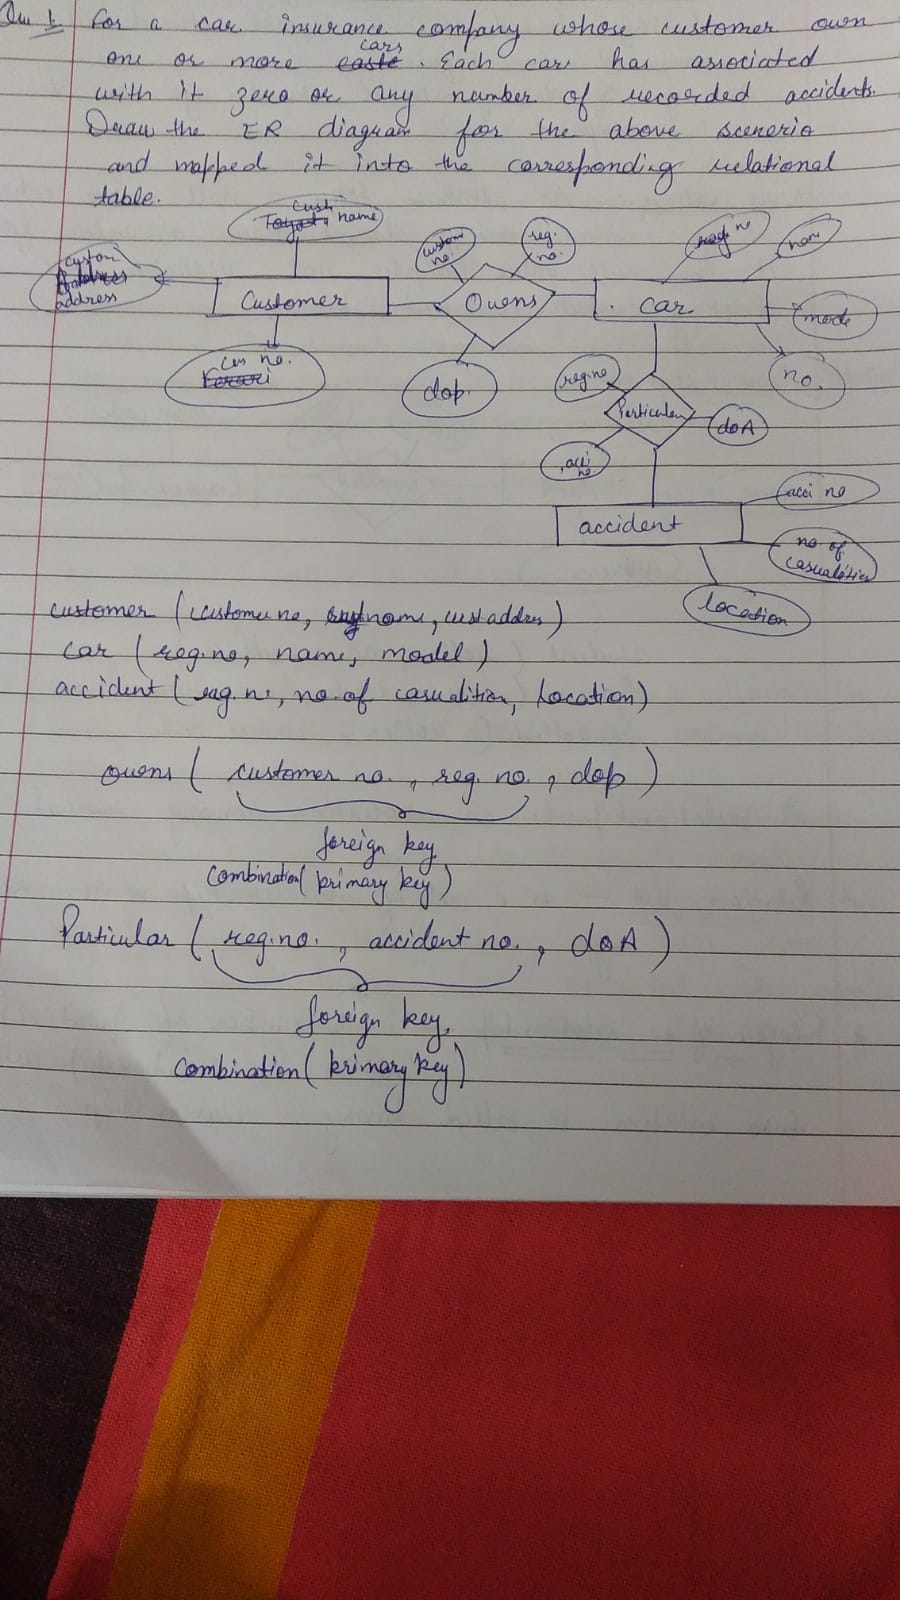 Que 1: For a car insurance company whose customer own
one or more cars. Each car has associated
with it zero or any number of recorded accidents.
Draw the ER diagram for the above scenerio
and mapped it into the corresponding relational
table.
Cust name
custom
address
Customer
Cus no.
custom no.
reg. no.
Owens
dop.
car
mode
no.
reg no
Particular
doA
acci no.
accident
acci no
no. of casualities
location
customer (custome no, name, cust addres)
car (reg.no, name, model)
accident (reg. no, no. of casualition, Location)
owens (customer no., reg. no., dop)
foreign key
Combination (primary key)
Particular (reg.no., accident no., doA)
foreign key,
Combination (primary key)